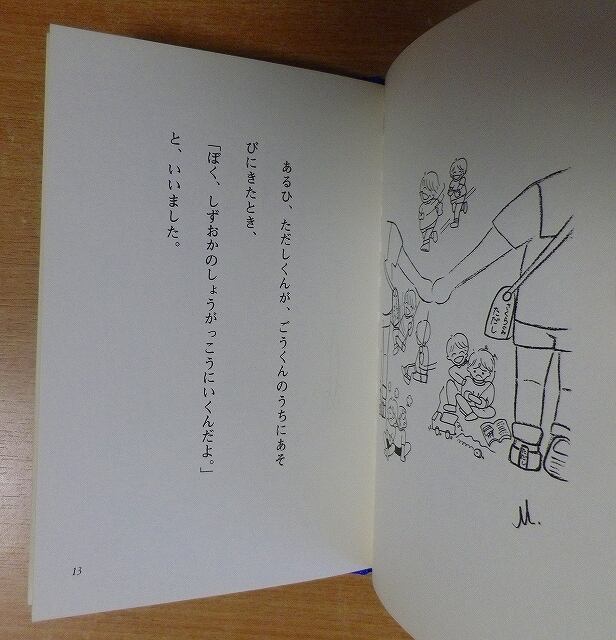 あるひ、ただしくんが、ごうくんのうちにあそ
びにきたとき、
「ぼく、しずおかのしょうがっこうにいくんだよ。」
と、いいました。
13
M.